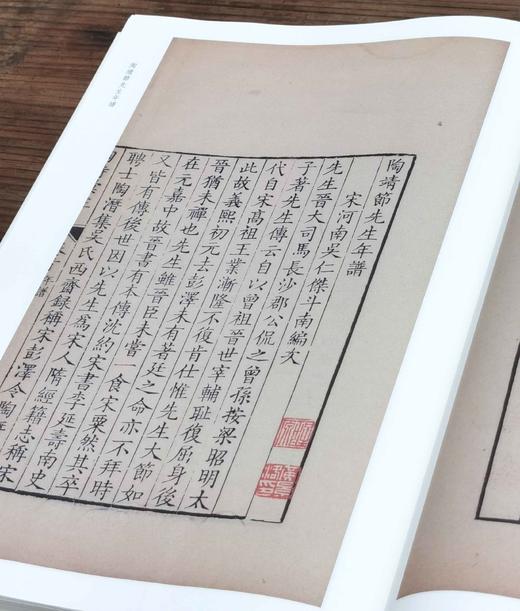 陶靖節先生年譜
陶靖節先生年譜
宋河南吳仁傑斗南編次
先生晉大司馬長沙郡公侃之曾孫按梁昭明太
子著先生傳云自以曾祖晉世宰輔恥復屈身後
代自宋高祖王業漸隆不復肯仕惟先生大節如
此故義熙初元去彭澤未有著廷之命亦不拜時
晉猶未禪也先生雖晉臣未嘗一食宋粟然其卒
在元嘉中故晉書有本傳沈約宋書李延壽南史
又皆有傳後世因以先生為宋人隋經籍志稱宋
聘士陶潛集吳氏西齋錄稱宋彭澤令陶